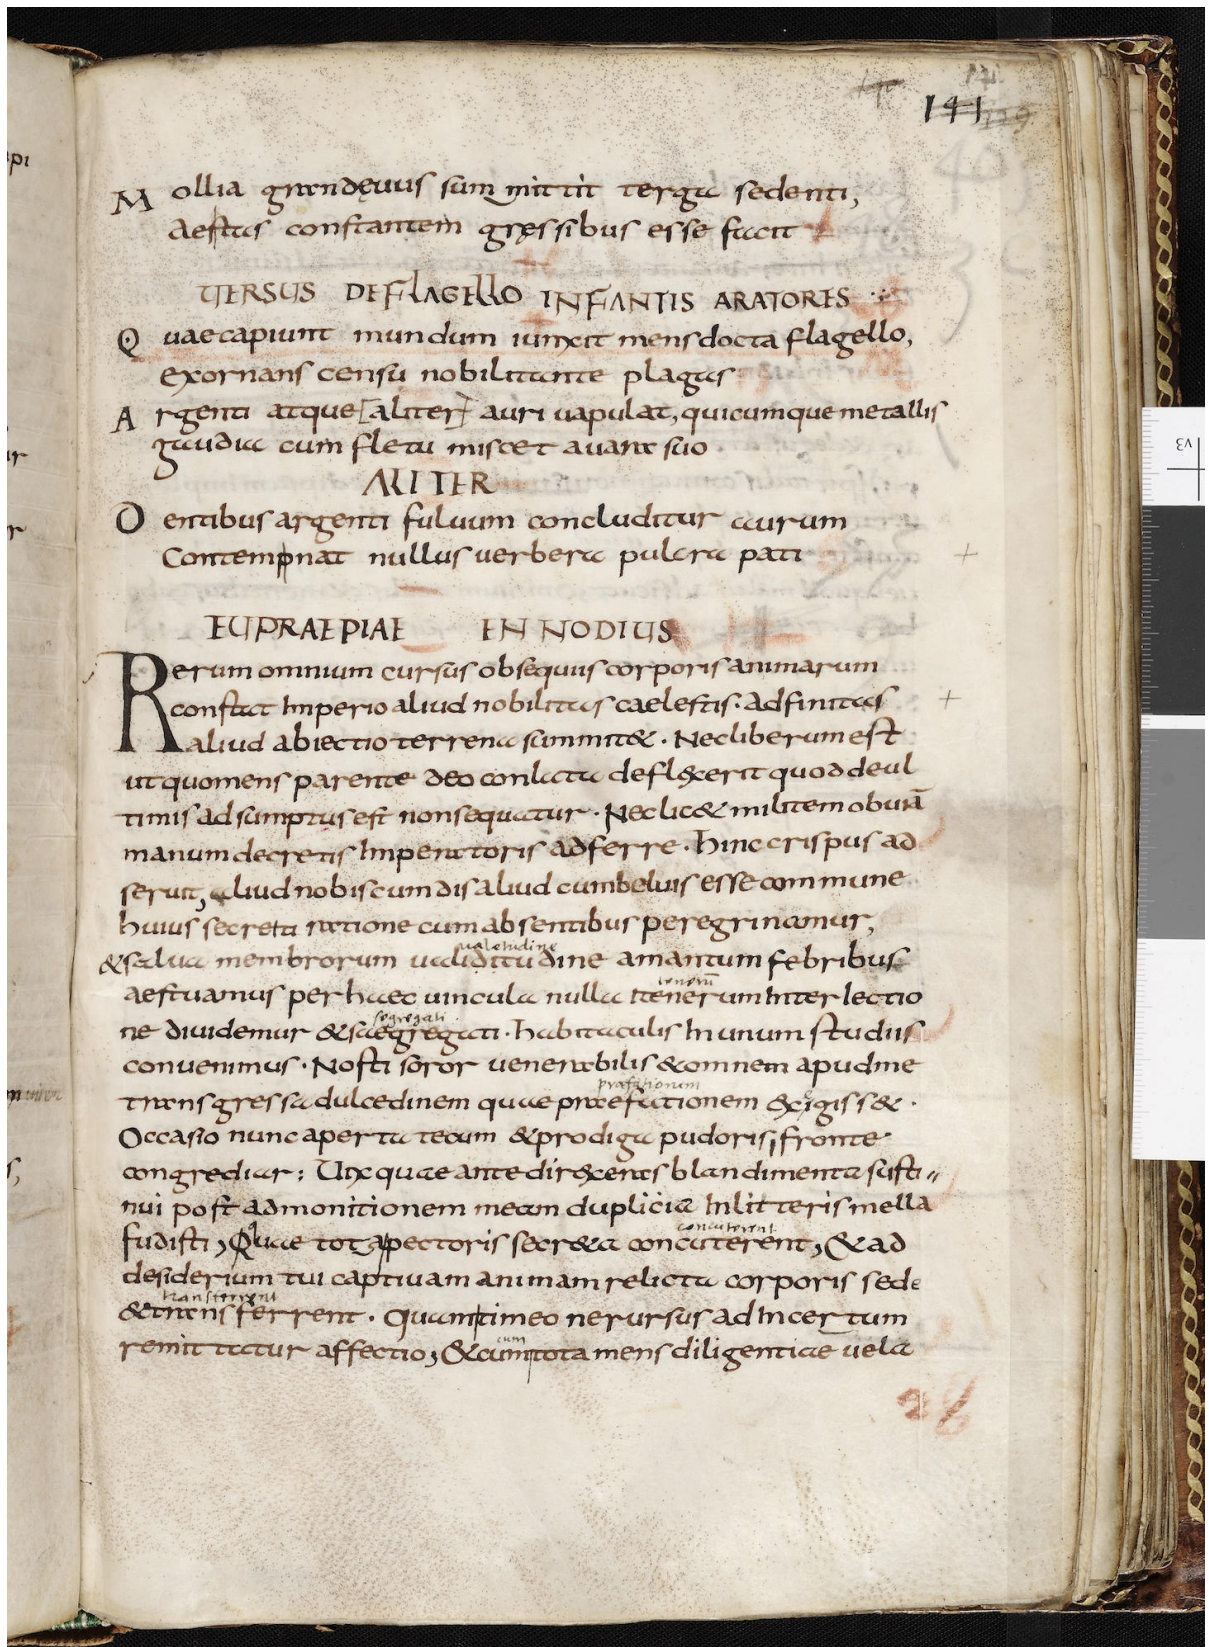 141
Mollia grandęuus sum mittit terga sedenti,
Aestas constantem gręssibus esse facit
UERSUS DE FLAGELLO INFANTIS ARATORES
Quae capiunt mundum iunxit mens docta flagello,
exornans censu nobilitante plagas
Argenti atque [aliter] auri uapulat, quicumque metallis
gaudia cum fletu miscet auara suo
ALITER
Dentibus argenti fuluum concluditur aurum
Contempnat nullus uerbera pulcra pati
EUPRAEPIAE ENNODIUS
Rerum omnium cursus obsequiis corporis animarum
constat Imperio aliud nobilitas caelestis. adfinitas
aliud abiectio terrena summit&. Nec liberum est
ut quo mens parente deo conlata deflexerit quod de ul
timis adsumptus est non sequatur. Nec lic& militem obuiā
manum decretis Imperatoris adferre. hinc crispus ad
seruit, aliud nobis cum dis aliud cum beluis esse commune
huius secreta ratione cum absentibus peregrinamur,
ualetudine
&salua membrorum ualiditudine amantum febribus
aestuamus per haec uincula nulla itenerum Inter lectio
segregati
ne diuidemur &saegregati. habitaculis In unum studiis
conuenimus. Nosti soror uenerabilis &omnem apud me
praefationem
transgressa dulcedinem quae praefationem exigiss&.
Occasio nunc aperta tecum &prodiga pudoris, fronte
congrediar; Uix quae ante direxeras blandimenta susti
nui post admonitionem meam duplicia In litteris mella
concuterent
fudisti, Quae tot pectoris secr&a concuterent, &ad
desiderium tui captiuam animam relicta corporis sede
transferrent
&transferrent. Quam timeo ne rursus ad Incertum
cum
remittatur affectio, &cum tota mens diligentiae uela